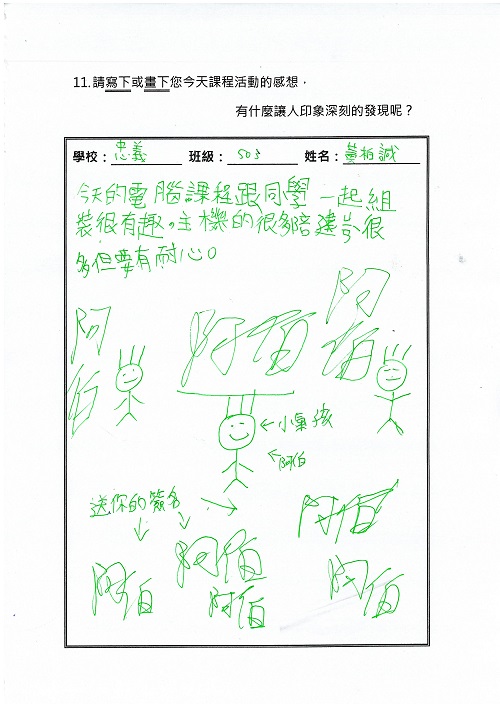 11.請寫下或畫下您今天課程活動的感想，
有什麼讓人印象深刻的發現呢？
學校：忠義 班級：503 姓名：黃柏誠
今天的電腦課程跟同學一起組
裝很有趣。主機的很多陪建岑很
多但要有耐心。
阿伯 阿伯 阿伯
←小屁孩
←阿伯
送你的簽名
阿伯
阿伯 阿伯
阿伯 阿伯